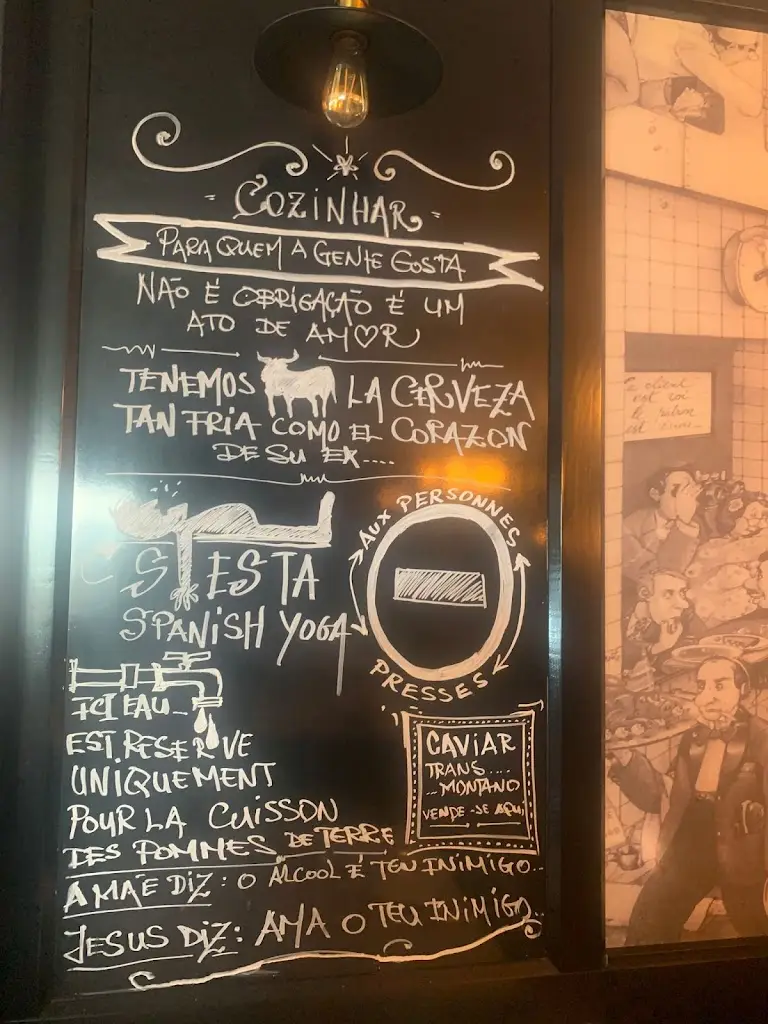 COZINHAR
PARA QUEM A GENTE GOSTA
NÃO É OBRIGAÇÃO É UM
ATO DE AM♡R
TENEMOS LA CERVEZA
TAN FRIA COMO EL CORAZON
DE SU EX....
SIESTA
SPANISH YOGA
AUX PERSONNES
PRESSES
ICI EAU
EST RESERVE
UNIQUEMENT
POUR LA CUISSON
DES POMMES DE TERRE
CAVIAR
TRANS....
..MONTANO
VENDE-SE AQUI
A MÃE DIZ: O ALCOOL É TEU INIMIGO..
JESUS DIZ: AMA O TEU INIMIGO..
le client
est roi
le patron
est